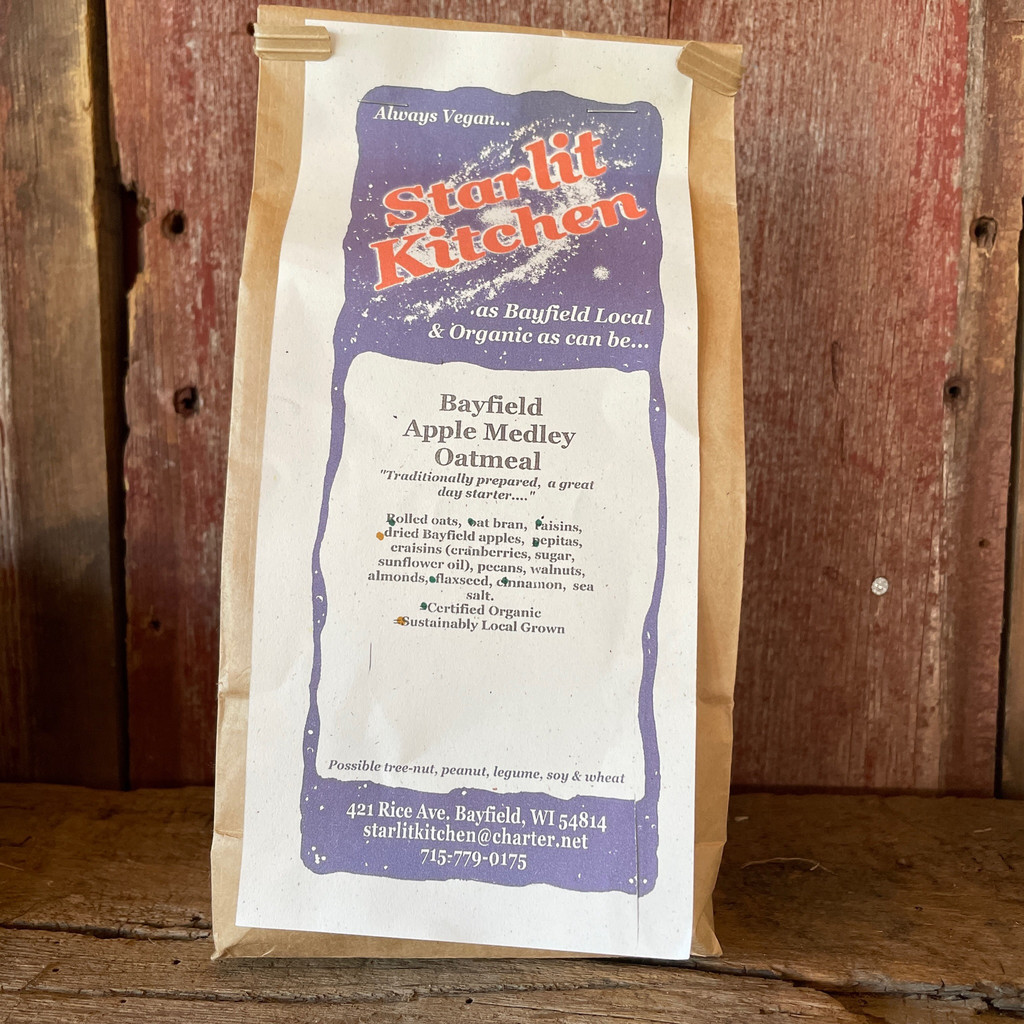 Always Vegan...
Starlit
Kitchen
.as Bayfield Local
& Organic as can be...
Bayfield
Apple Medley
Oatmeal
"Traditionally prepared, a great
day starter...."
Rolled oats, oat bran, raisins,
dried Bayfield apples, pepitas,
craisins (cranberries, sugar,
sunflower oil), pecans, walnuts,
almonds, flaxseed, cinnamon, sea
salt.
Certified Organic
=Sustainably Local Grown
Possible tree-nut, peanut, legume, soy & wheat
421 Rice Ave. Bayfield, WI 54814
starlitkitchen@charter.net
715-779-0175